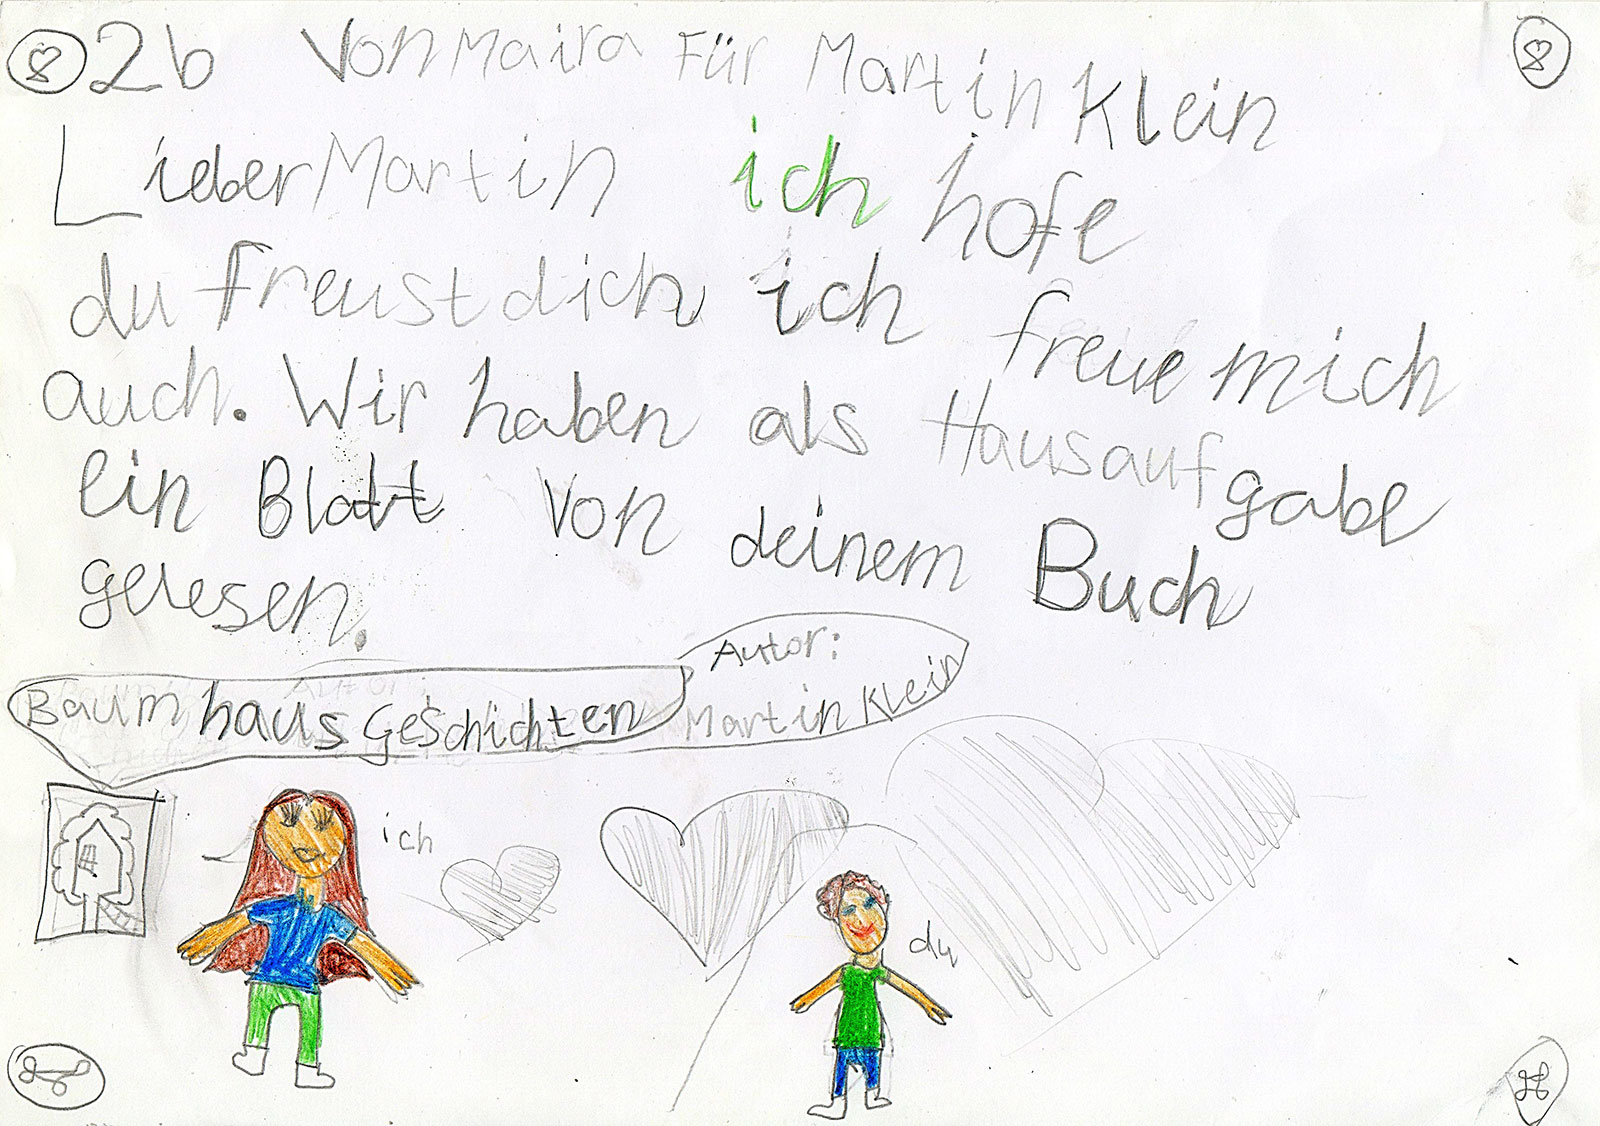 2b Von Maira Für Martin Klein
Lieber Martin ich hofe
du freust dich ich freue mich
auch. Wir haben als Hausaufgabe
ein Blatt von deinem Buch
gelesen.
Autor:
Martin Klein
Baumhaus Geschichten
ich
du